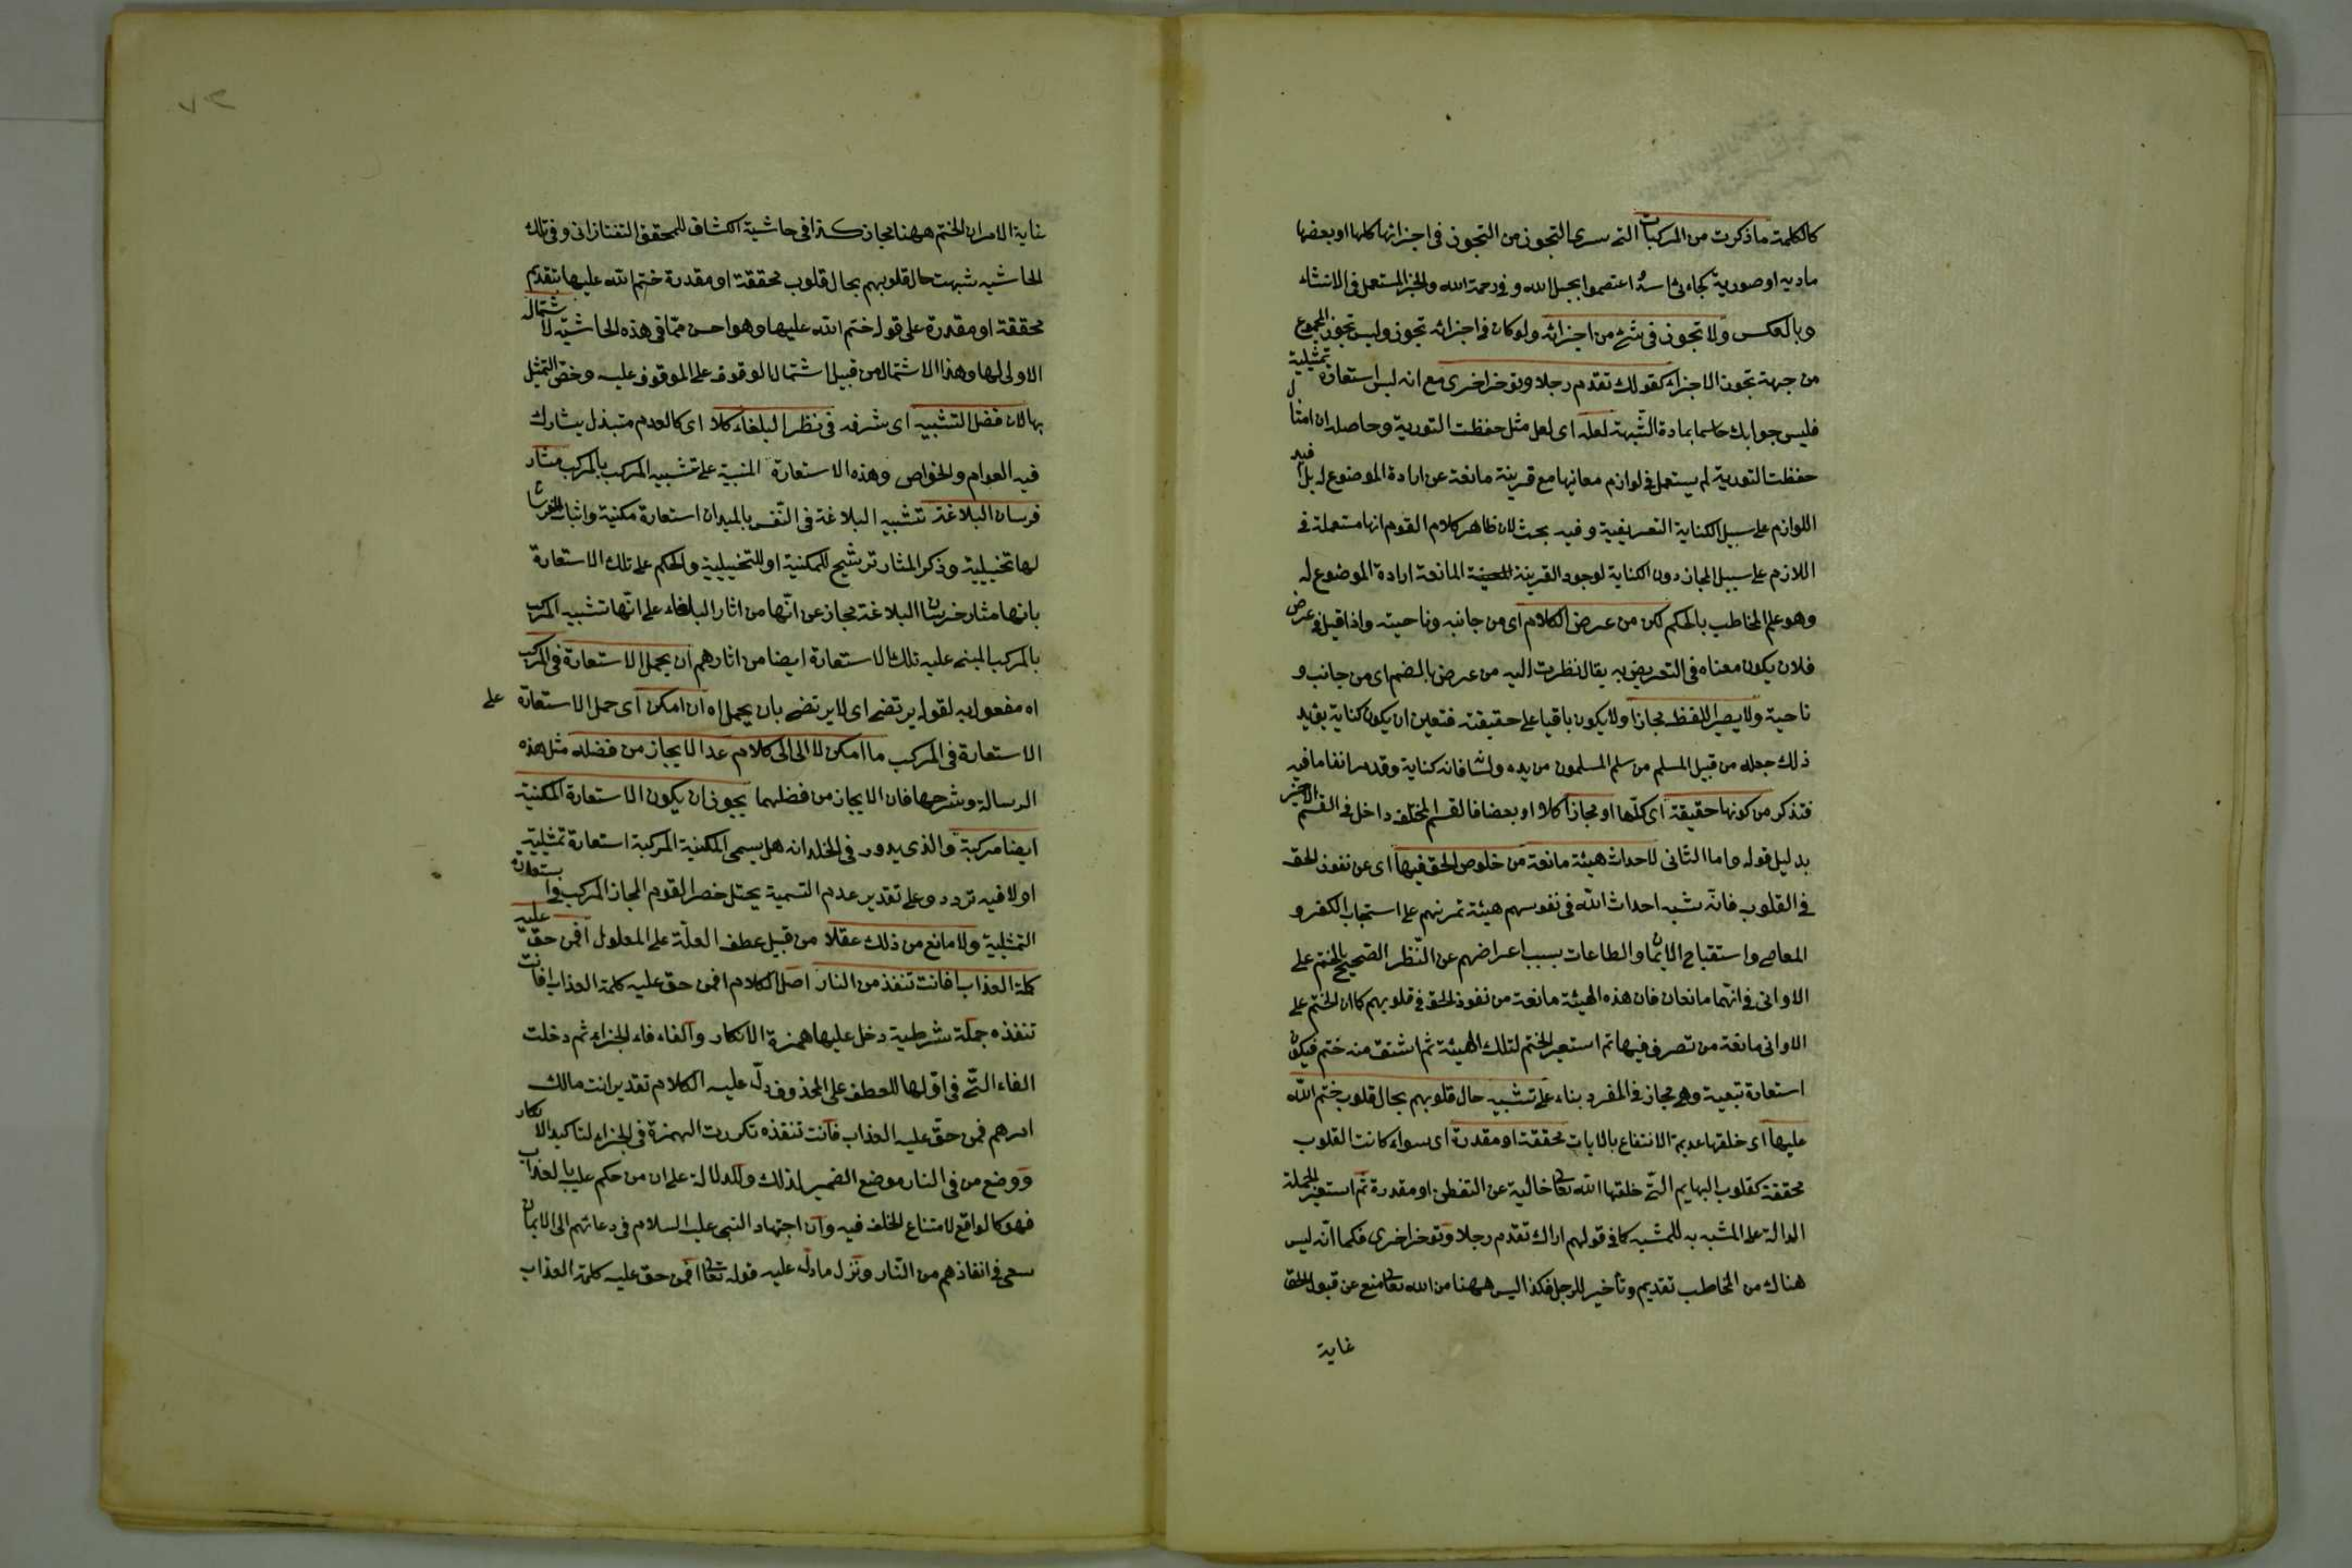 كالكلمة ما ذكرت من المركبات التى سرى التجوز من التجوز فى اجزائها كلها او بعضها
مادية او صورية كجاءنى اسد اعتصموا بحبل الله و فى رحمة الله والخبر المستعمل فى الانشاء
وبالعكس ولا تجوز فى شئ من اجزائه ولو كان فى اجزائه تجوز وليس تجوز المجموع
من جهة تجوز الاجزاء كقولك تقدم رجلا وتوخر اخرى مع انه ليس استعارة تمثيلية
فليس جوابك حاسما بمادة الشبهة لعله اى لعل مثل حفظت التورية وحاصله ان امثال
حفظت التورية لم يستعمل فى لوازم معانيها مع قرينة مانعة عن ارادة الموضوع له بل افيد
اللوازم على سبيل الكناية التعريضية وفيه بحث لان ظاهر كلام القوم انها مستعملة فى
اللازم على سبيل المجاز دون الكناية لوجود القرينة المانعة ارادة الموضوع له
وهو علم المخاطب بالحكم لكن من عرض الكلام اى من جانبه وناحيته واذا قيل فى عرض
فلان يكون معناه فى التعريض به يقال نظرت اليه من عرض بالضم اى من جانب و
ناحية ولا يصير اللفظ مجازا ولا يكون باقيا على حقيقته فتعين ان يكون كناية يؤيد
ذلك جعله من قبيل المسلم من سلم المسلمون من يده ولسانه فانه كناية وقد مر انفا ما فيه
فتذكر من كونها حقيقة اى كلها او مجازا كلا او بعضا فالقسم المختلف داخل فى القسم الاخير
بدليل قوله واما الثانى لاحداث هيئة مانعة من خلوص الحق فيها اى عن نفوذ الحق
فى القلوب فانه شبه احداث الله فى نفوسهم هيئة تمرنهم على استحباب الكفر و
المعاصى واستقباح الايمان والطاعات بسبب اعراضهم عن النظر الصحيح بالختم على
الاوانى فى انهما مانعان فان هذه الهيئة مانعة من نفوذ الحق فى قلوبهم كما ان الختم على
الاوانى مانعة من تصرف فيها ثم استعير الختم لتلك الهيئة ثم اشتق منه ختم فيكون
استعارة تبعية وهى مجاز فى المفرد بناء على تشبيه حال قلوبهم بحال قلوب ختم الله
عليها اى خلقها عديمة الانتفاع بالايات محققة او مقدرة اى سواء كانت القلوب
محققة كقلوب البهايم التى خلقها الله تعالى خالية عن التفطن او مقدرة ثم استعير الجملة
الدالة على المشبه به للمشبه كما فى قولهم اراك تقدم رجلا وتوخر اخرى فكما انه ليس
هناك من المخاطب تقديم وتأخير للرجل فكذا ليس ههنا من الله تعالى منع عن قبول الحق
غاية
غاية الامر ان الختم ههنا مجاز كذا فى حاشية الكشاف للمحقق التفتازانى وفى تلك
الحاشيه شبهت حال قلوبهم بحال قلوب محققة او مقدرة ختم الله عليها بتقديم
محققة او مقدرة على قوله ختم الله عليها وهو احسن مما فى هذه الحاشية لاشتمال
الاولى لها وهذا الاشتمال من قبيل اشتمال الوقوف على الموقوف عليه وخص التمثيل
بها لان فضل التشبيه اى شرفه فى نظر البلغاء كلا اى كالعدم متبذل يشارك
فيه العوام والخواص وهذه الاستعارة المنبية على تشبيه المركب بالمركب مثار
فرسان البلاغة تشبيه البلاغة فى النفس بالميدان استعارة مكنية واثبات الفرسان
لها تخييلية وذكر المثار ترشيح للمكنية او للتخييلية والحكم على تلك الاستعارة
بانها مثار فرسان البلاغة مجاز عن انها من اثار البلغاء على انها تشبيه المركب
بالمركب المبنى عليه تلك الاستعارة ايضا من اثارهم ان يحمل الاستعارة فى المركب
اه مفعول به لقوله يرتضى اى لا يرتضى بان يحمل اه ان امكن اى حمل الاستعارة على
الاستعارة فى المركب ما امكن لا الى الى كلام عد الايجاز من فضله مثل هذه
الرسالة وشرحها فان الايجاز من فضلهما يجوز ان يكون الاستعارة المكنية
ايضا مركبة والذى يدور فى الخلد انه هل يسمى المكنية المركبة استعارة تمثيلية
اولا فيه تردد وعلى تقدير عدم التسمية يختل حصر القوم المجاز المركب فى الاستعارة
التمثيلية ولا مانع من ذلك عقلا من قبيل عطف العلة على المعلول افمن حق عليه
كلمة العذاب افانت تنقذ من النار اصل الكلام افمن حق عليه كلمة العذاب افانت
تنقذه جملة شرطية دخل عليها همزة الانكار والفاء فاء الجزاء ثم دخلت
الفاء التى فى اولها للعطف على المحذوف دل عليه الكلام تقديره انت مالك
امرهم فمن حق عليه العذاب فانت تنقذه تكررت الهمزة فى الجزاء لتاكيد الانكار
ووضع من فى النار موضع الضمير لذلك وللدلالة على ان من حكم عليه بالعذاب
فهو كالواقع لامتناع الخلف فيه وان اجتهاد النبى عليه السلام فى دعائهم الى الايمان
سعى فى انقاذهم من النار ونزل ما دل عليه قوله تعالى افمن حق عليه كلمة العذاب